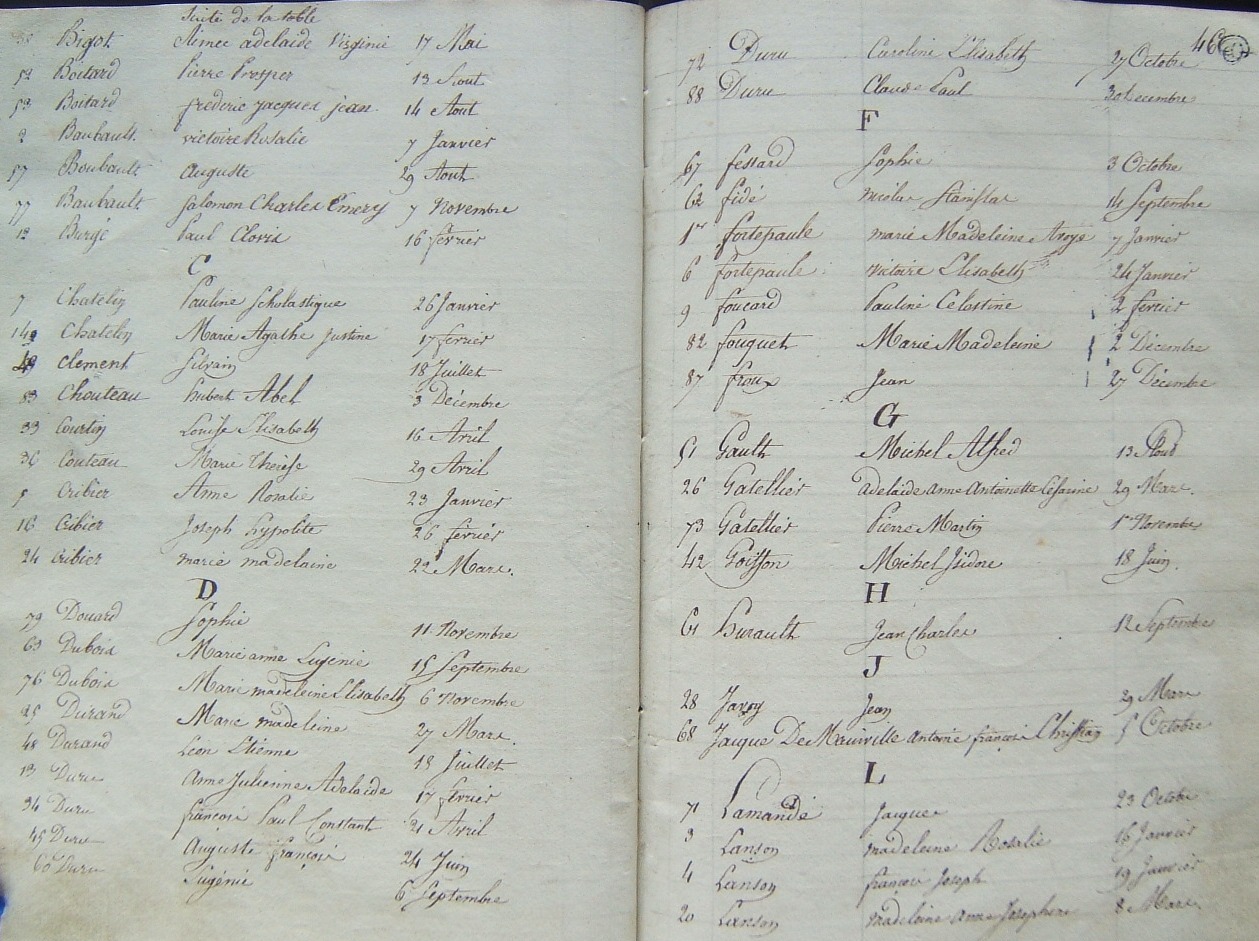 Suite de la table
38 Bigot Aimée adelaide Virginie 17 Mai
52 Boitard Pierre Prosper 13 Aout
53 Boitard frederic jacques jean 14 Aout
2 Baubault victoire Rosalie 7 Janvier
57 Boubault auguste 29 Aout
77 Baubault Salomon Charles Emery 7 Novembre
12 Burgé Paul Clovis 16 février
C
7 Chatelin Pauline Scholastique 26 Janvier
14 Chatelin Marie Agathe Justine 17 février
49 Clement Silvain 18 Juillet
83 Chouteau hubert Abel 3 Décembre
33 Courtin Louise Elisabeth 16 Avril
36 Couteau Marie Thérèse 29 Avril
5 Cribier Anne Rosalie 23 Janvier
16 Cribier Joseph hypolite 26 février
24 Cribier marie madelaine 22 Mars.
D
79 Douard Sophie 11 Novembre
63 Dubois Marie anne Eugenie 15 Septembre
76 Dubois Marie madeleine Elisabeth 6 Novembre
25 Durand Marie madeleine 27 Mars.
48 Durand Léon Etienne 18 Juillet
13 Duru Anne Julienne Adelaide 17 février
34 Duru françois Paul Constant 21 Avril
45 Duru Auguste françois 24 Juin
60 Duru Eugénie 6 Septembre
46
72 Duru Caroline Elisabeth 27 Octobre
88 Duru Claude Paul 30 decembre
F
67 fessard Sophie 3 Octobre
62 fidé nicolas Stanislas 14 Septembre
1er fortepaule marie Madeleine Aroys 7 Janvier
6 fortepaule victoire Elisabeth 24 Janvier
9 foucard Pauline Celestine 2 fevrier
82 fouquet Marie Madeleine 2 Décembre
87 froux Jean 27 Décembre
G
51 Gault Michel Alfred 13 Aout
26 Gatellier Adelaide Anne Antoinette Césarine 29 Mars.
73 Gatellier Pierre Martin 1er Novembre
42 Goisson Michel Isidore 18 Juin
H
61 hurault Jean Charles 12 Septembre
J
28 Javoy Jean 29 Mars
68 Jacque De Mainville Antoine françois Christian 5 Octobre
L
71 Lamandé Jacques 23 Octobre
3 Lanson madeleine Rosalie 16 Janvier
4 Lanson françois Joseph 19 Janvier
20 Lanson madeleine anne Josephine 8 Mars.